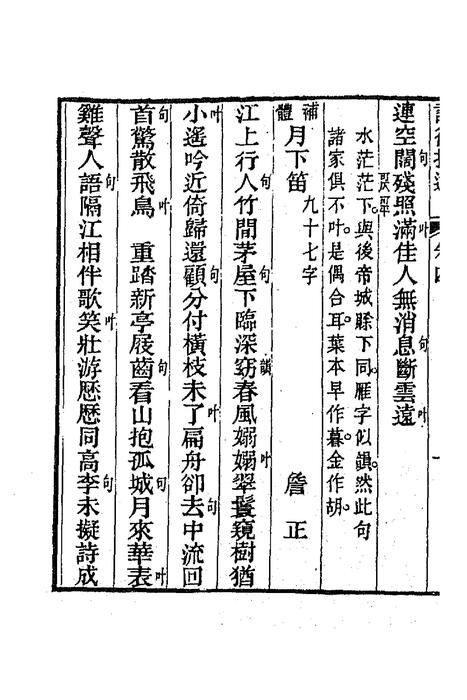 連空闊句殘照滿叶佳人無消息句斷雲遠叶
水茫茫下與後帝城賒下同雁字似韻然此句
諸家俱不叶是偶合耳葉本早作暮金作胡
補體月下笛 九十七字 詹正
江上行人句竹間茅屋句下臨深窈韻春風嫋嫋叶翠鬟窺樹猶
小叶遙吟近倚歸還顧句分付橫枝未了叶扁舟卻去句中流回
首句驚散飛鳥叶 重踏新亭屐齒句看山抱孤城句月來華表叶
雞聲人語句隔江相伴歌笑叶壯游歷歷同高李句未擬詩成